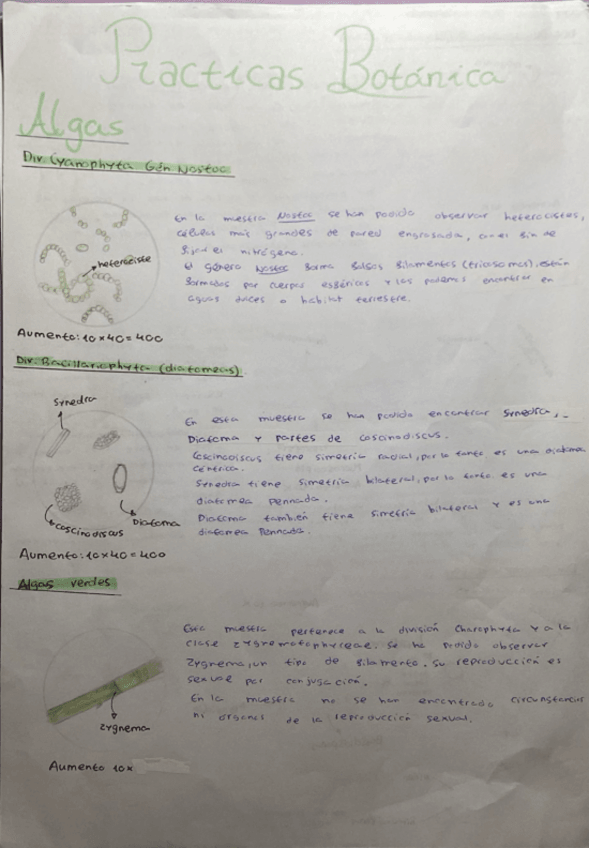 Practicas Botánica
Algas
Div. Cyanophyta Gén Nostoc
En la muestra Nostoc se han podido observar heterocistes,
células más grandes de pared engrosada, con el fin de
fijar el nitrógeno.
El género Nostoc forma falsos filamentos (tricosomas). están
formados por cuerpos esféricos y los podemos encontrar en
aguas dulces o hábitat terrestre.
heterociste
Aumento: 10 x 40 = 400
Div. Bacillariophyta (diatomeas)
Synedra
coscinodiscus
Diatoma
En esta muestra se han podido encontrar Synedra,
Diatoma y partes de coscinodiscus.
Coscinodiscus tiene simetría radial, por lo tanto es una diatomea
céntrica.
Synedra tiene simetría bilateral, por lo tanto es una
diatomea pennada.
Diatoma también tiene simetría bilateral y es una
diatomea Pennada.
Aumento: 10 x 40 = 400
Algas verdes
Esta muestra pertenece a la división Charophyta y a la
clase zygnematophyceae. se ha podido observar
Zygnema, un tipo de filamento. su reproducción es
sexual por conjugación.
En la muestra no se han encontrado circunstancias
ni órganos de la reproducción sexual.
zygnema
Aumento 10x